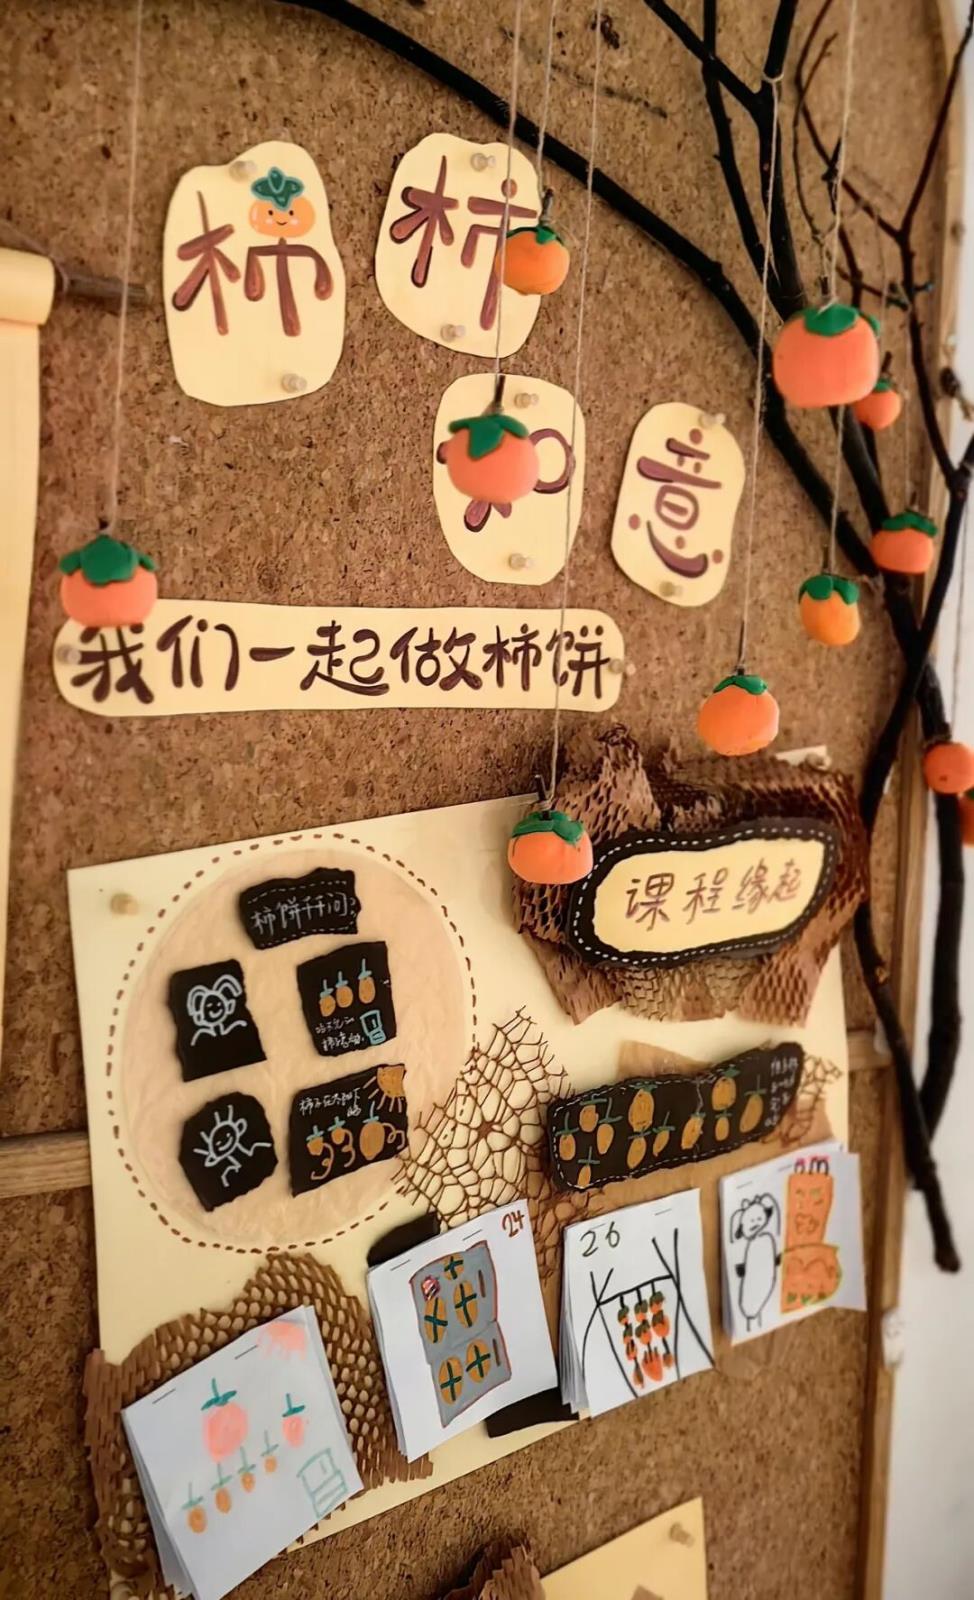 柿柿
如意
我们一起做柿饼
课程缘起
柿饼千问
24
26